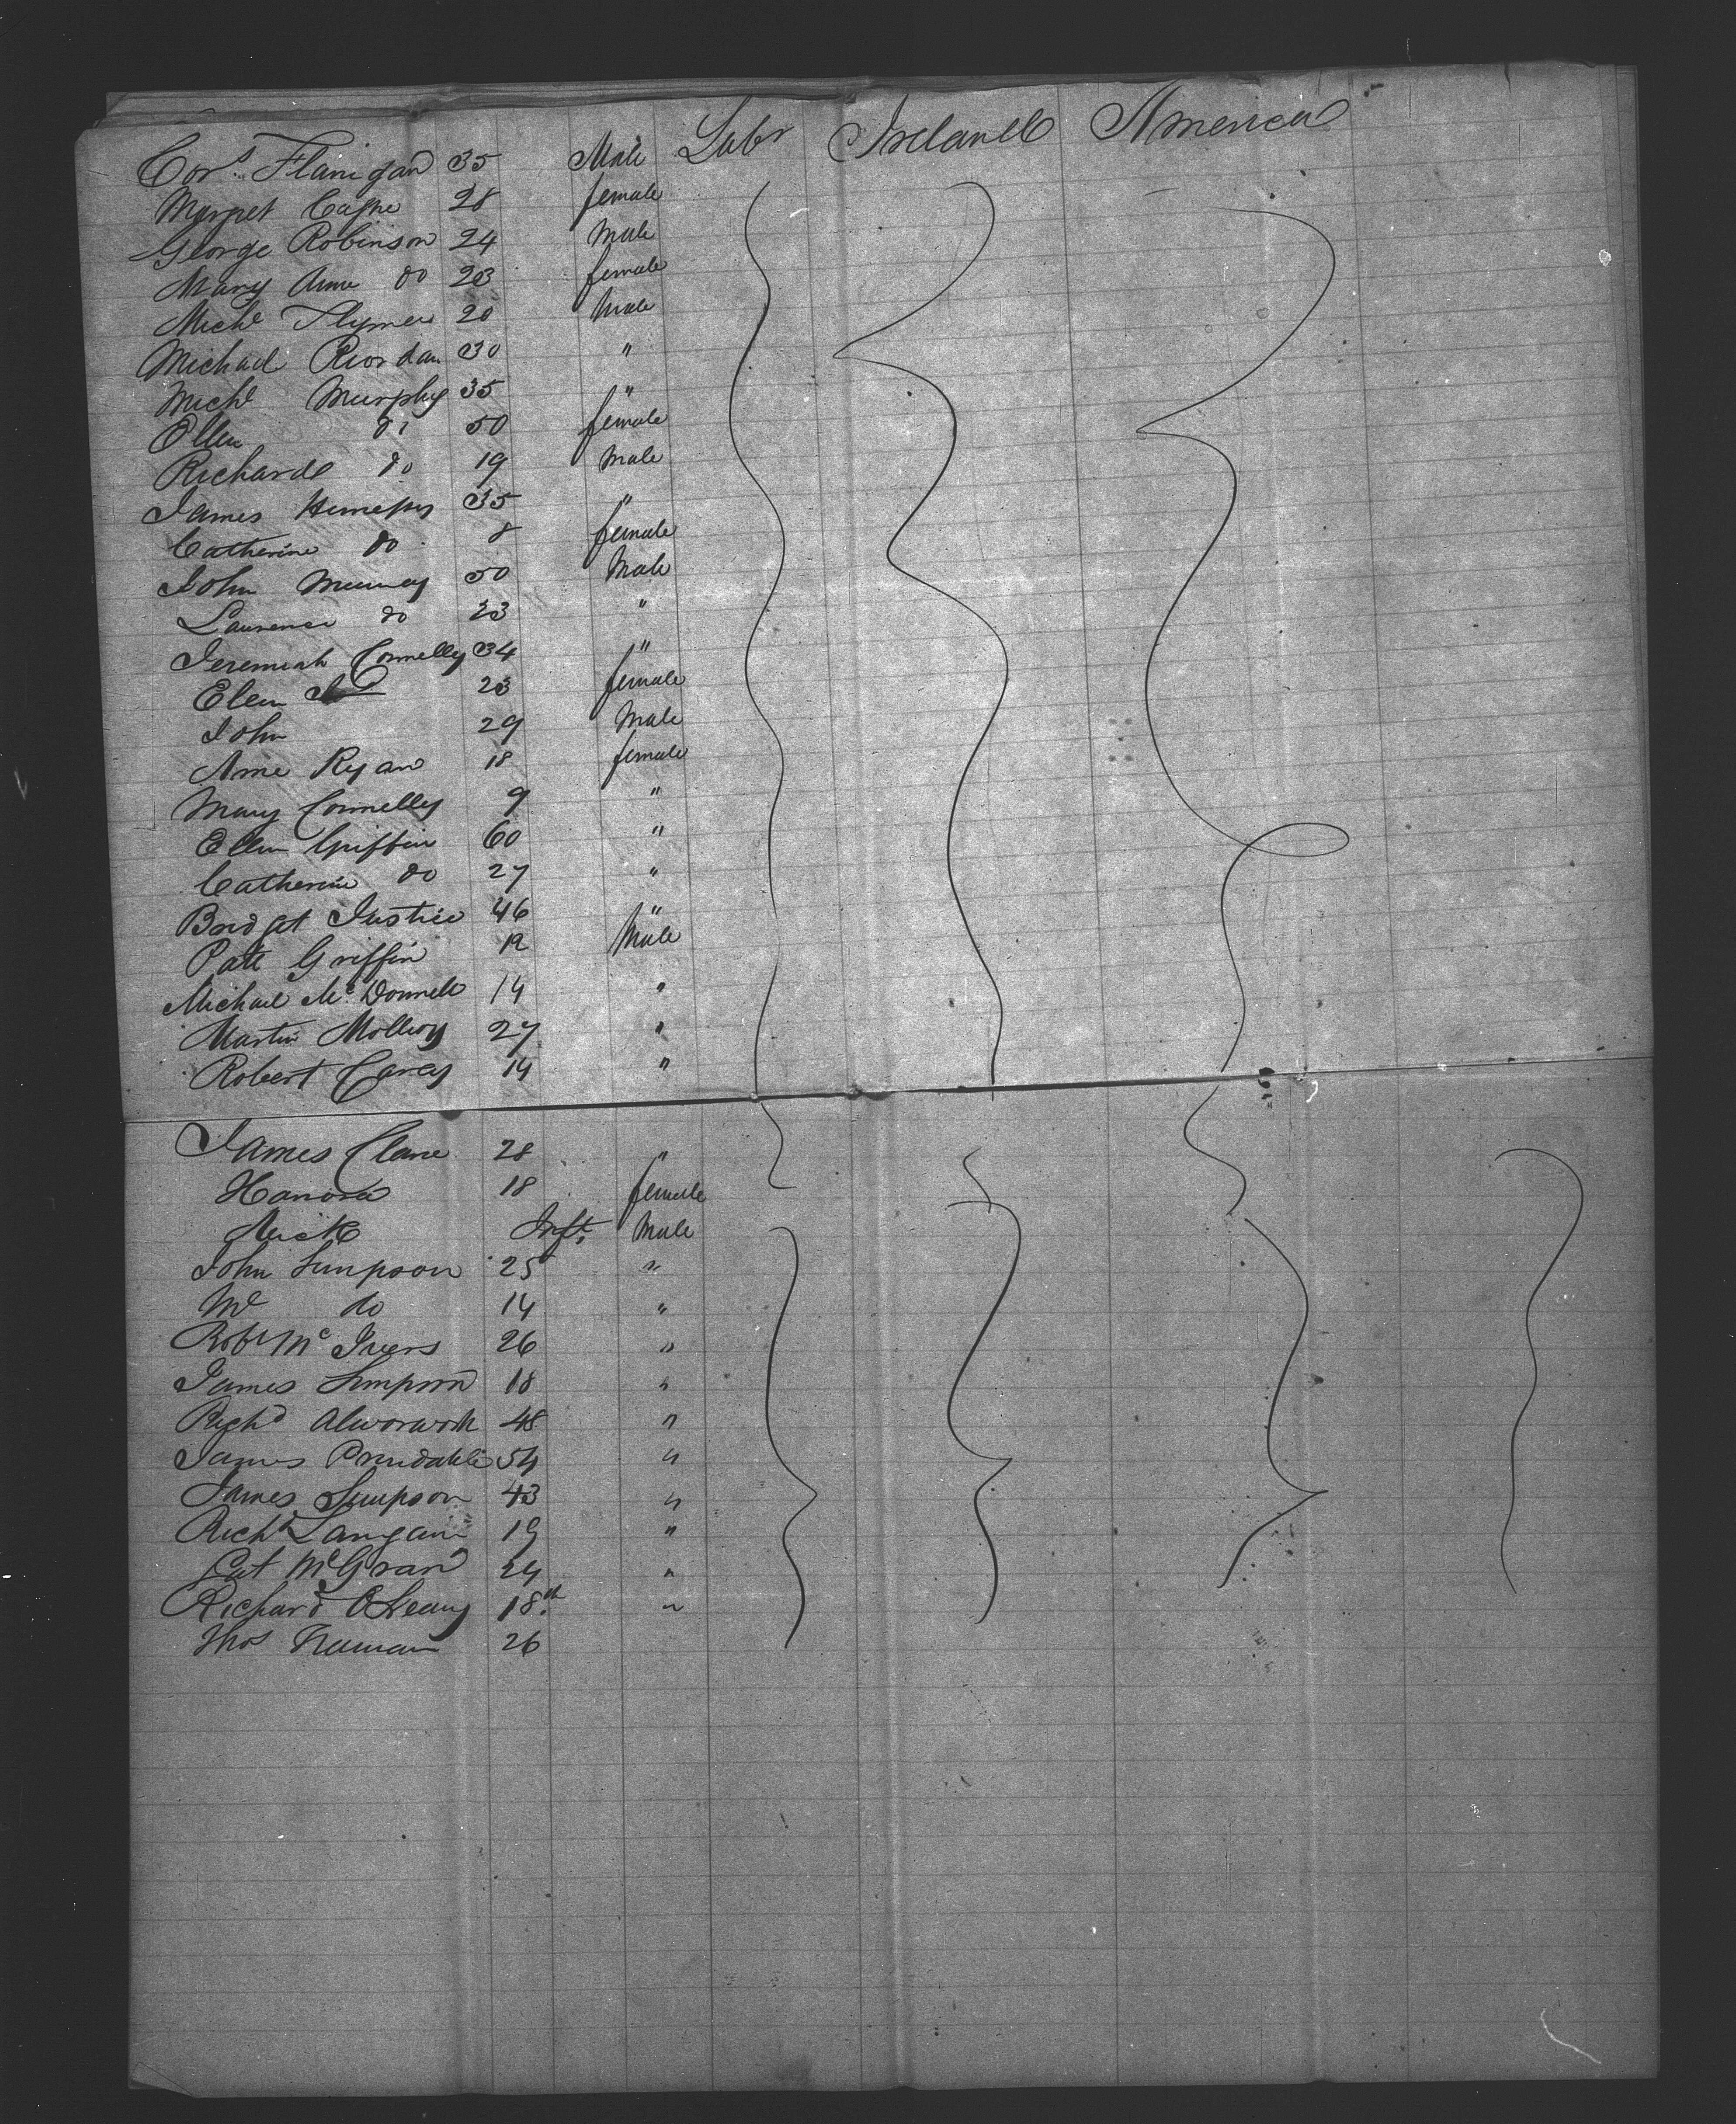 Cors. Flanigan 35 Male Labr Ireland America
Margret 28 female
George Robinson 24 Male
Mary Anne do 23 female
Michl 20 Male
Michael Riordan 30 "
Michl Murphy 35 "
Ellen do 50 female
Richard do 19 Male
James 35 "
Catherine do 8 female
John Murray 50 Male
Laurence do 23 "
Jeremiah Connelly 34 "
Elen 23 female
John 29 Male
Anne Ryan 18 female
Mary Connelly 9 "
Ellen Griffin 60 "
Catherine do 27 "
Bridget Justice 46 "
Patt Griffin 12 Male
Michael McDonnell 14 "
Martin Molloy 27 "
Robert Carey 14 "
James Clane 28 "
Hanora 18 female
Mick Inft. Male
John Simpson 25 "
Wm do 14 "
Robt McIvers 26 "
James Simpson 18 "
Richd 48 "
James 54 "
James Simpson 43 "
Richd Langan 19 "
Pat McGran 24 "
Richard OLeary 18th "
Thos 26